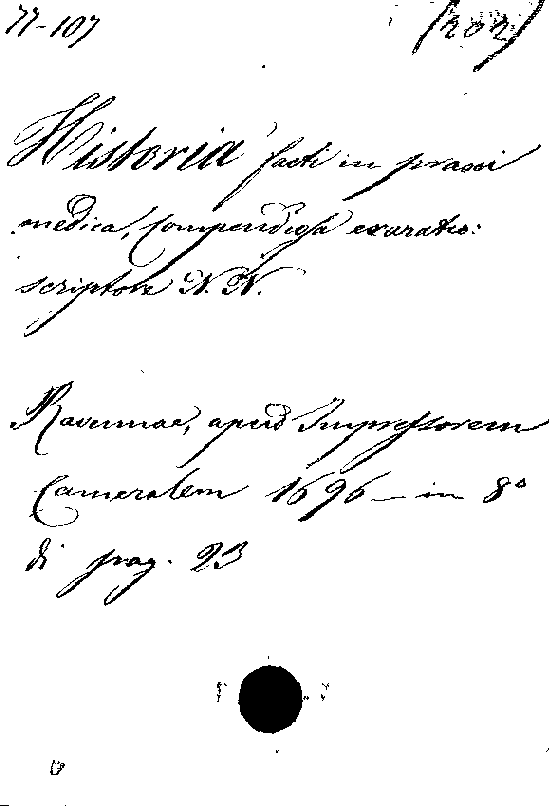 77-107
Historia facti in praxi
medica, Compendiosa exaratio:
scriptore N. N.
Ravennae, apud Impressorem
Cameralem 1696 — in 8°
di pag. 23